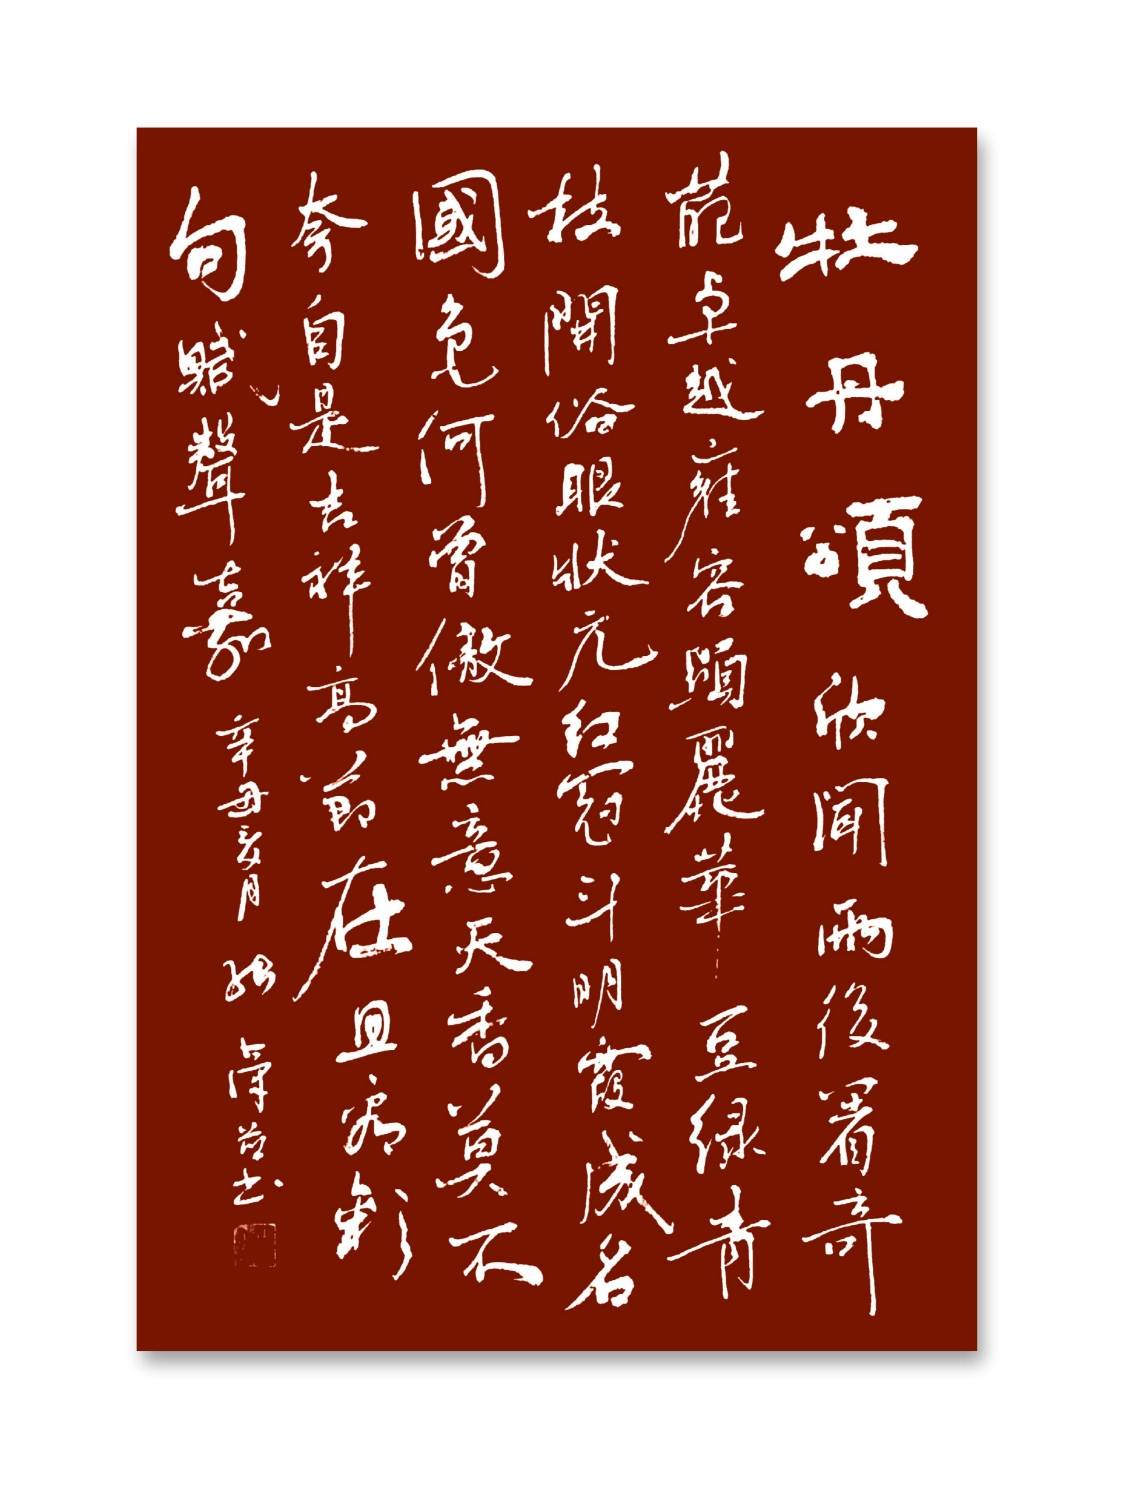 牡丹頌 欣聞雨後著奇
葩卓越雍容顯麗華豆綠青
枝開俗眼狀元紅冠斗明霞成名
國色何曾傲無意天香莫不
夸自是吉祥高節在且將彩
句賦聲嘉 辛丑亥月 書